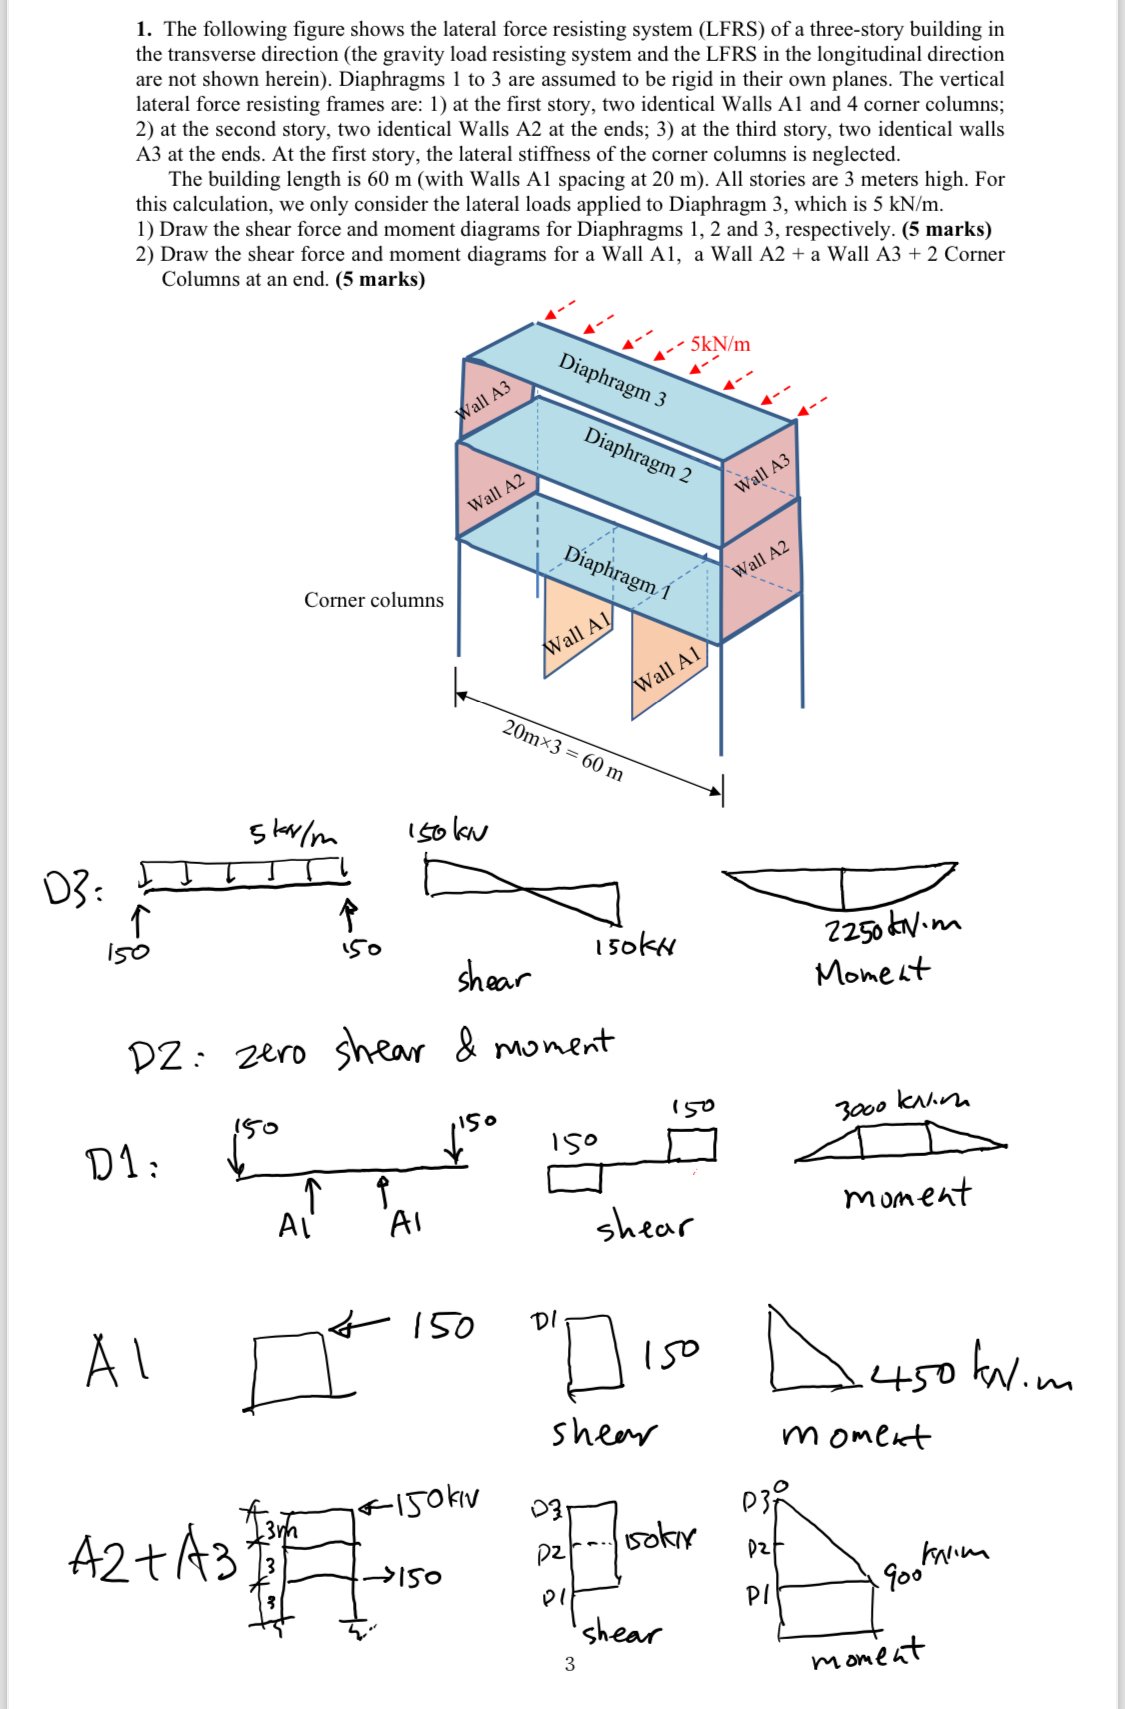 1. The following figure shows the lateral force resisting system (LFRS) of a three-story building in
the transverse direction (the gravity load resisting system and the LFRS in the longitudinal direction
are not shown herein). Diaphragms 1 to 3 are assumed to be rigid in their own planes. The vertical
lateral force resisting frames are: 1) at the first story, two identical Walls A1 and 4 corner columns;
2) at the second story, two identical Walls A2 at the ends; 3) at the third story, two identical walls
A3 at the ends. At the first story, the lateral stiffness of the corner columns is neglected.
The building length is 60 m (with Walls A1 spacing at 20 m). All stories are 3 meters high. For
this calculation, we only consider the lateral loads applied to Diaphragm 3, which is 5 kN/m.
1) Draw the shear force and moment diagrams for Diaphragms 1, 2 and 3, respectively. (5 marks)
2) Draw the shear force and moment diagrams for a Wall A1, a Wall A2 + a Wall A3 + 2 Corner
Columns at an end. (5 marks)
5kN/m
Diaphragm 3
Wall A3
Diaphragm 2
Wall A3
Wall A2
Diaphragm 1
Wall A2
Corner columns
Wall A1
Wall A1
20m×3 = 60 m
5 kN/m
150 kN
D3:
150
150
150kN
2250 kN.m
shear
Moment
D2: zero shear & moment
150
150
150
150
3000 kN.m
D1:
A1
A1
shear
moment
A1
150
D1
150
450 kN.m
shear
moment
A2+A3
3m
3
3
150kN
150
D3
D2
D1
150kN
shear
D3
0
D2
D1
900 kN.m
moment
3